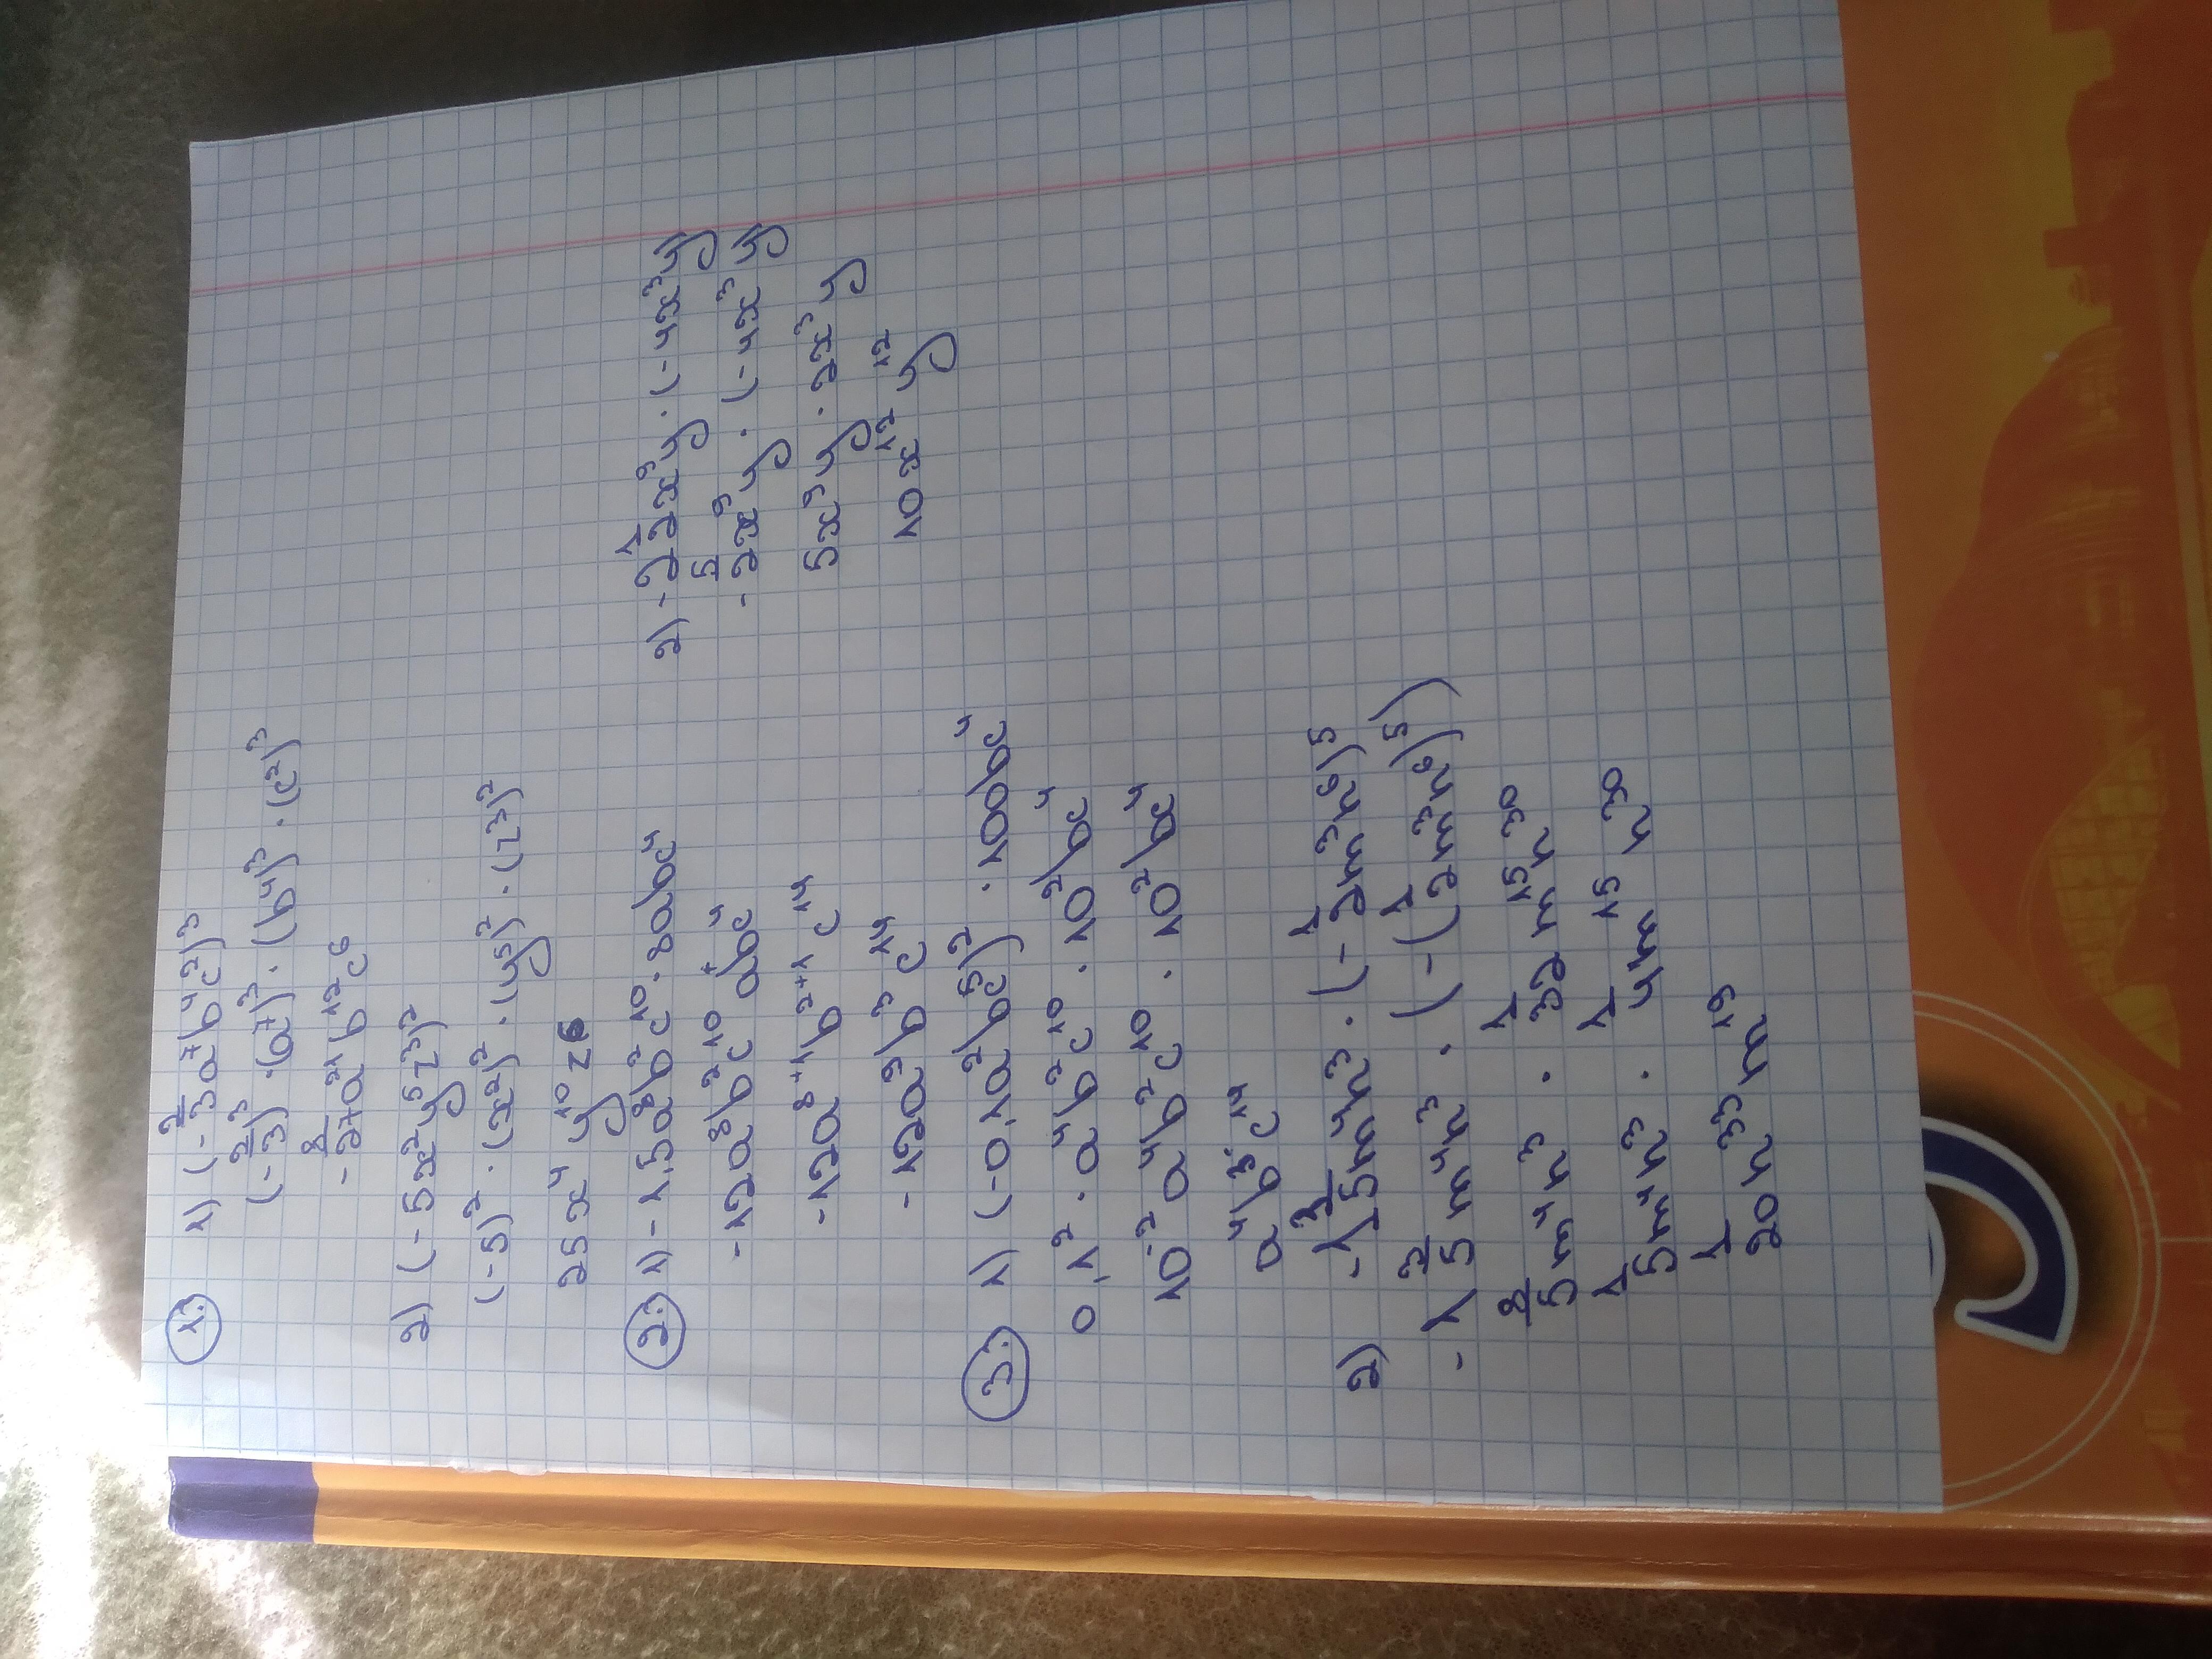 1. 1) (-2/3 a⁷b⁴c²)³
(-2/3)³ · (a⁷)³ · (b⁴)³ · (c²)³
-8/27 a²¹b¹²c⁶
2) (-5x²y⁵z³)²
(-5)² · (x²)² · (y⁵)² · (z³)²
25x⁴y¹⁰z⁶
2. 1) -1,5a⁸b²c¹⁰ · 8abc⁴
-12a⁸b²c¹⁰abc⁴
-12a⁸⁺¹b²⁺¹c¹⁴
-12a⁹b³c¹⁴
2) -2 1/2 x⁹y · (-4x³y)
-5/2 x⁹y · (-4x³y)
5x⁹y · 2x³y
10x¹²y¹²
3. 1) (-0,1a²bc⁵)² · 100bc⁴
0,1² · a⁴b²c¹⁰ · 10²bc⁴
10⁻²a⁴b²c¹⁰ · 10²bc⁴
a⁴b³c¹⁴
2) -1 3/5 m⁴n³ · (-1/2 m³n⁶)⁵
-1 3/5 m⁴n³ · (-(1/2 m³n⁶)⁵)
8/5 m⁴n³ · 1/32 m¹⁵n³⁰
1/5 m⁴n³ · 1/4 m¹⁵n³⁰
1/20 n³³m¹⁹